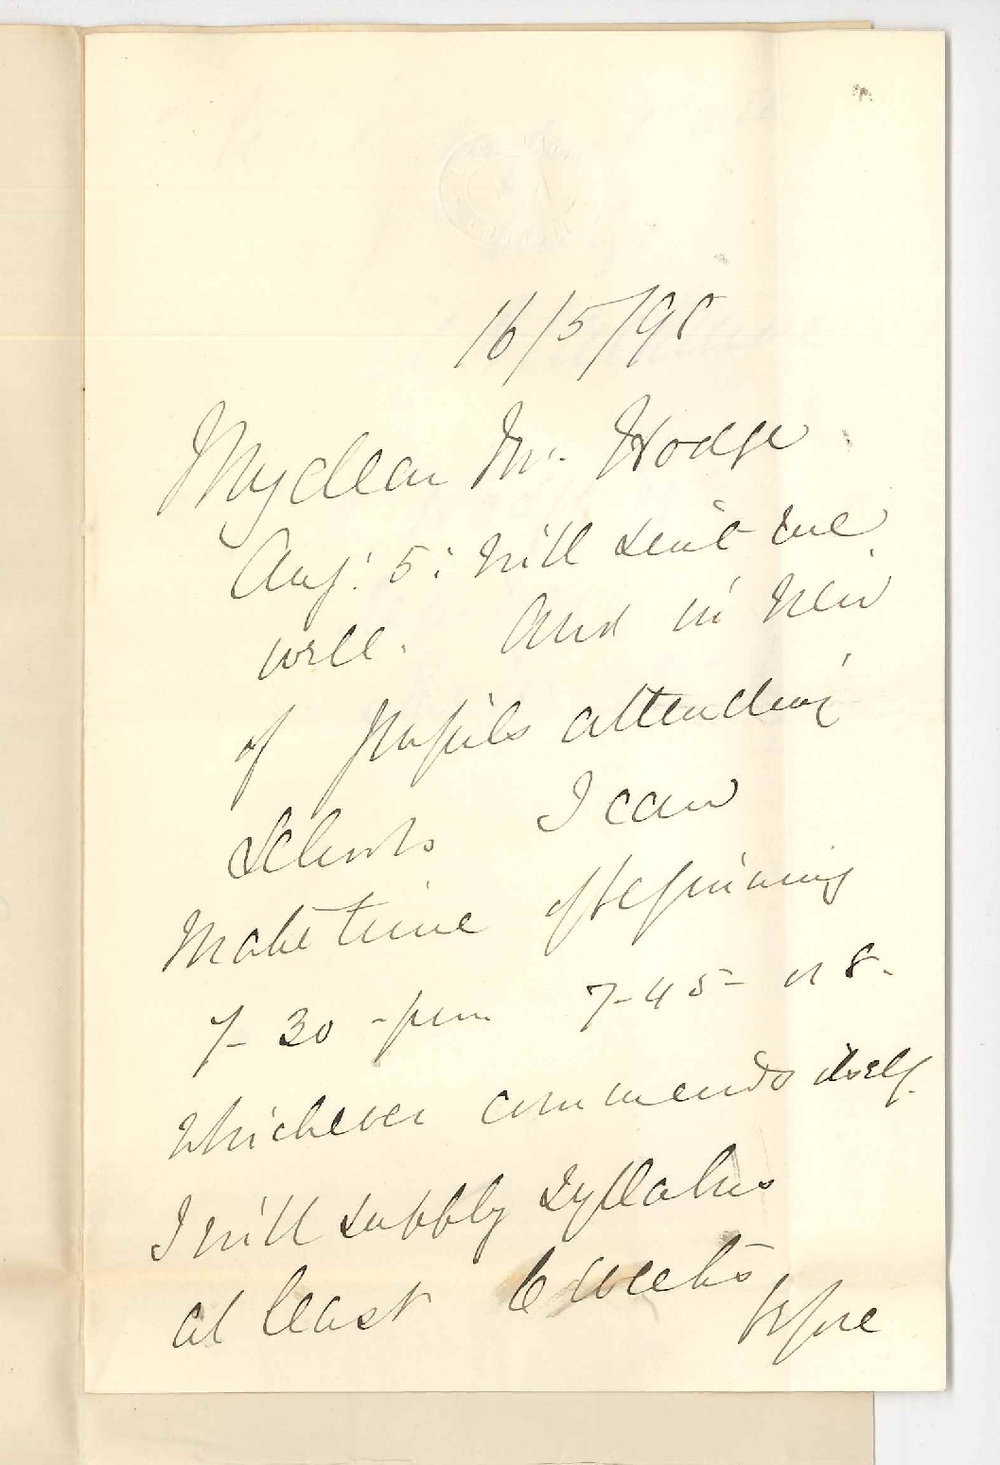 16/5/98
My dear Mr. Hodge
Aug: 5: will suit me
well. And in view
of pupils attending
Schools I can
make time of beginning
7-30-pm 7-45- or 8.
whichever commends itself.
I will supply Syllabus
at least 6 weeks
before